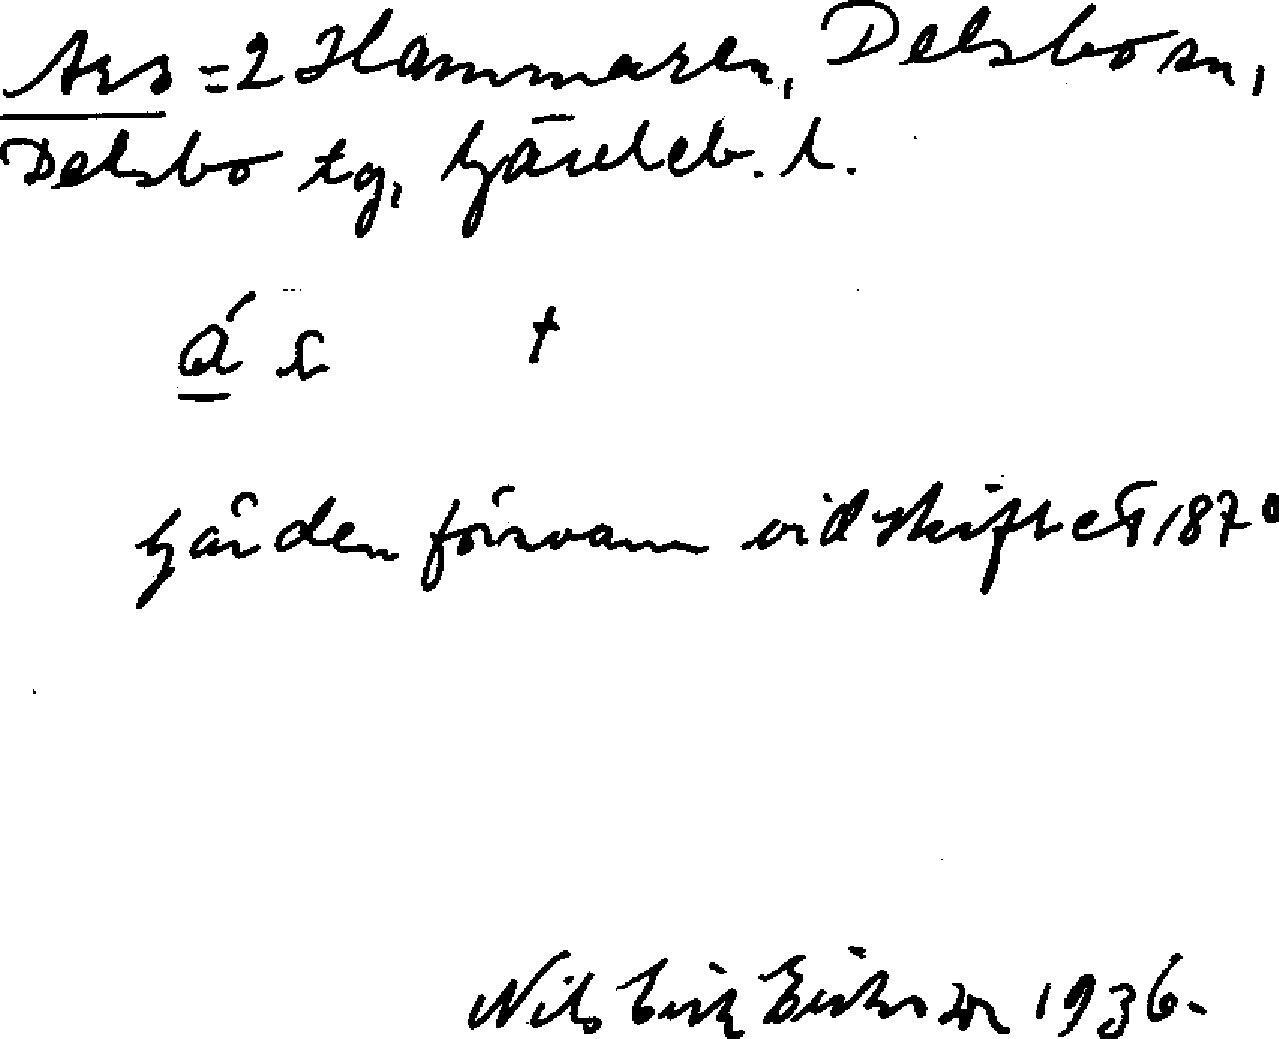 Ars =2 Hammaren, Delsbo sn,
Delsbo tg, Gävleb. l.
á s †
Gården försvann vid skiftet 1870
Nils Erik Eriksson 1936.